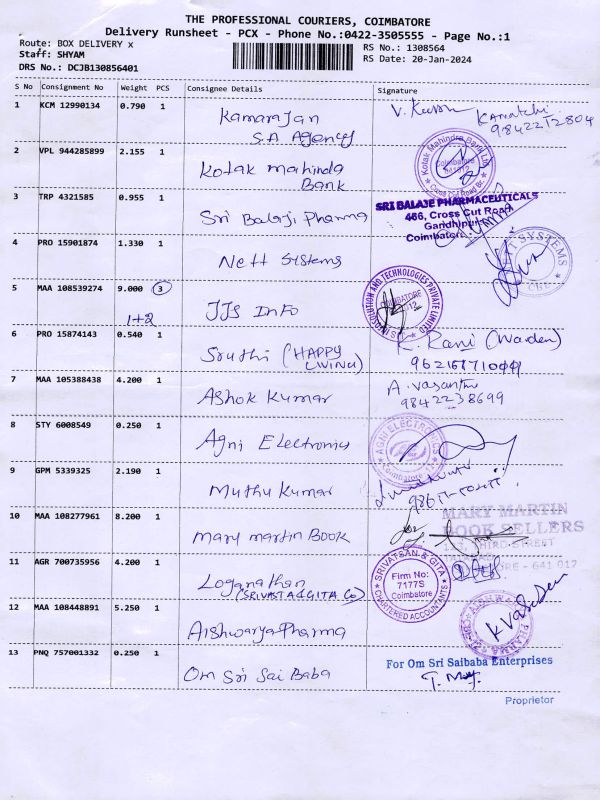 THE PROFESSIONAL COURIERS, COIMBATORE
Delivery Runsheet - PCX - Phone No.:0422-3505555 - Page No.:1
Route: BOX DELIVERY x
Staff: SHYAM
DRS No.: DCJB130856401
RS No.: 1308564
RS Date: 20-Jan-2024
S No Consignment No Weight PCS Consignee Details Signature
1 KCM 12990134 0.790 1 Kamarajan
S.A Agency
2 VPL 944285899 2.155 1 Kotak mahinda
Bank
Kotak Mahindra Bank Ltd
Coimbatore
3 TRP 4321585 0.955 1 Sri Balaji Pharma
SRI BALAJE PHARMACEUTICALS
466, Cross Cut Road
Gandhipuram
Coimbatore
4 PRO 15901874 1.330 1 Nett Systems
5 MAA 108539274 9.000 3
1+2
JJS Info
6 PRO 15874143 0.540 1 Sruthi (HAPPY
WING)
R. Rani (Warden)
7 MAA 105388438 4.200 1 Ashok Kumar
A. Vasantha
9842238699
8 STY 6008549 0.250 1 Agni Electronics
AGNI ELECTRONICS
9 GPM 5339325 2.190 1 Muthu Kumar
10 MAA 108277961 8.200 1 Mary martin Book
MARY MARTIN
BOOK SELLERS
THIRD STREET
641 017
11 AGR 700735956 4.200 1 Loganathan
SRIVATSAN & GITA
Firm No:
7177S
Coimbatore
CHARTERED ACCOUNTANTS
12 MAA 108448891 5.250 1 Aishwarya Pharma
13 PNQ 757001332 0.250 1 Om Sri Sai Baba
For Om Sri Saibaba Enterprises
Proprietor